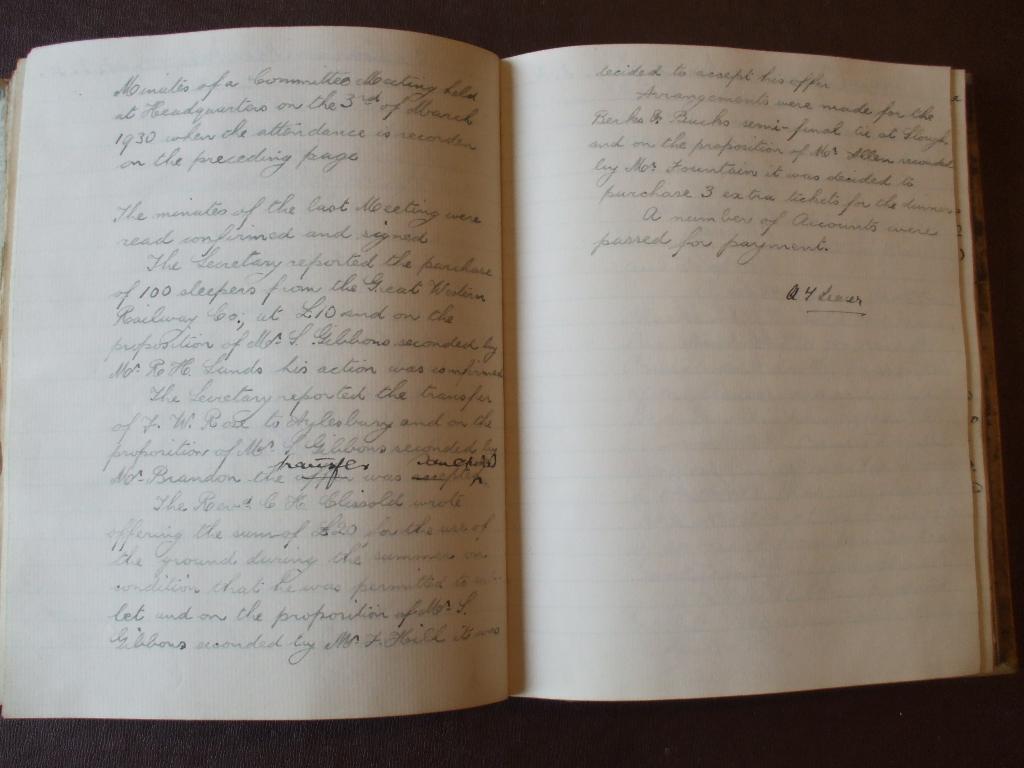 Minutes of a Committee Meeting held
at Headquarters on the 3rd of March
1930 when the attendance is recorded
on the preceding page
The minutes of the last Meeting were
read confirmed and signed
The Secretary reported the purchase
of 100 sleepers from the Great Western
Railway Co; at £10 and on the
proposition of Mr. S. Gibbons seconded by
Mr. R. H. Lunds his action was confirmed
The Secretary reported the transfer
of F. W. to Aylesbury and on the
proposition of Mr. S. Gibbons seconded by
transfer
Mr. Brandon the was
The Revd. C. H. Clissold wrote
offering the sum of £20 for the use of
the ground during the summer on
condition that he was permitted to
let and on the proposition of Mr. S.
Gibbons seconded by Mr. F. it was
decided to accept his offer
Arrangements were made for the
Berks & Bucks semi-final tie at Slough
and on the proposition of Mr. Allen seconded
by Mr. Fountain it was decided to
purchase 3 extra tickets for the dinner
A number of Accounts were
passed for payment.